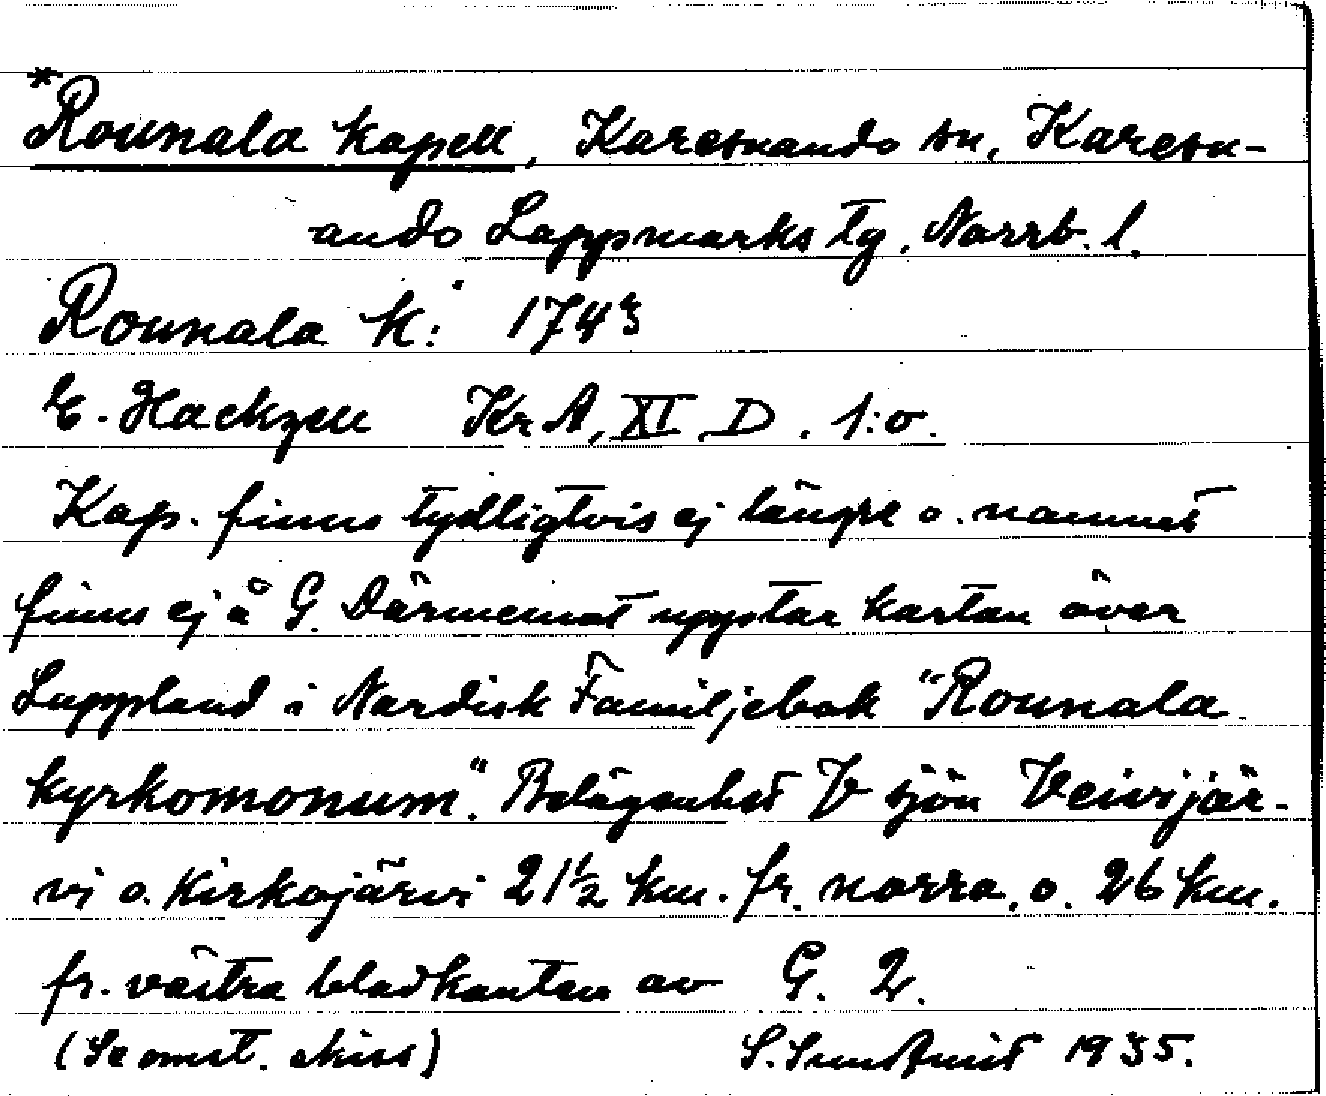 *Rounala kapell, Karesuando sn, Karesu-
ando Lappmarks tg, Norrb. l.
Rounala K: 1743
E. Hackzell KrA, XI, D, 1:o.
Kap. finns tydligtvis ej längre o. namnet
finns ej å G. Däremot upptar kartan över
Lappland i Nordisk Familjebok "Rounala
kyrkomonum." Belägenhet V sjön Veivijär-
vi o. Kirkojärvi 21½ km. fr. norra, o. 26 km.
fr. västra bladkanten av G. 2.
(Se omst. skiss) S. Sundqvist 1935.